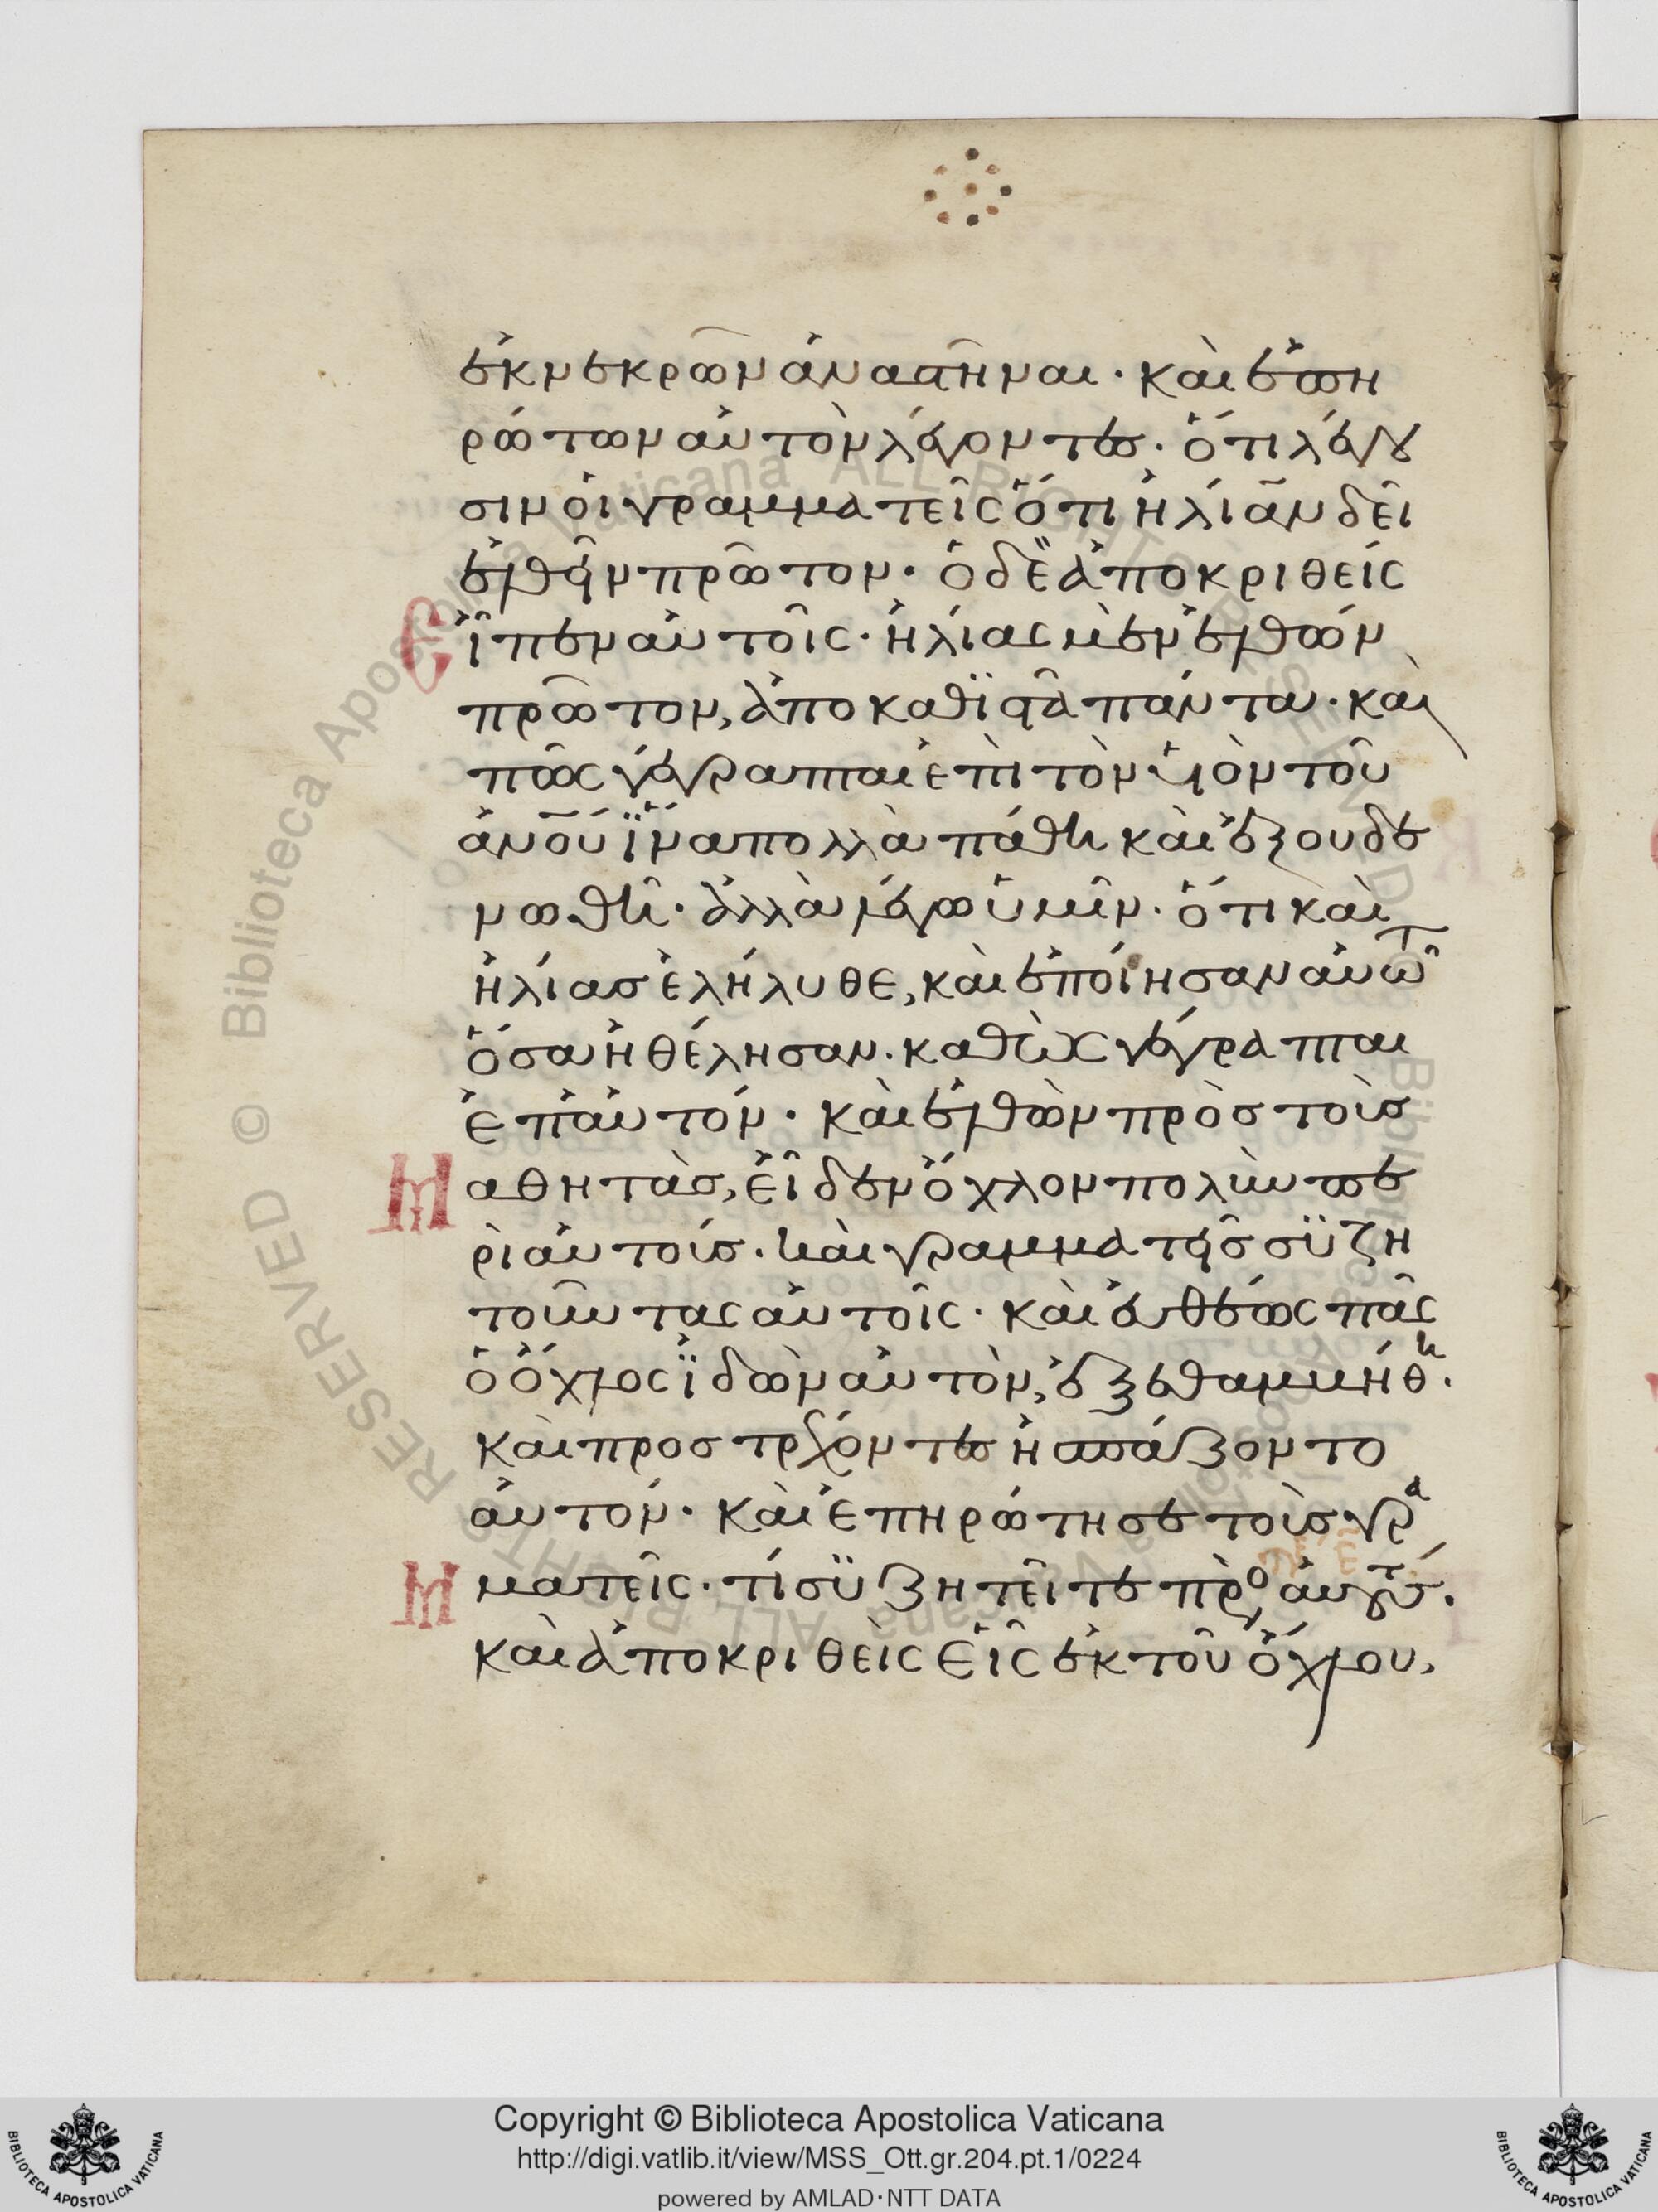 ἐκ νεκρῶν ἀναστῆναι· καὶ ἐπη
ρώτων αὐτὸν λέγοντες· ὅτι λέγου
σιν οἱ γραμματεῖς ὅτι ἠλίαν δεῖ
ἐλθεῖν πρῶτον· ὁ δὲ ἀποκριθεὶς
εἶπεν αὐτοῖς· ἠλίας μὲν ἐλθὼν
πρῶτον, ἀποκαθϊστᾶ πάντα· καὶ
πῶς γέγραπται ἐπὶ τὸν υἱὸν τοῦ
ἀνοῦ ἵνα πολλὰ πάθη καὶ ἐξουδε
νωθῆ· ἀλλὰ λέγω ὑμῖν· ὅτι καὶ
ἠλίας ἐλήλυθε, καὶ ἐποίησαν αὐτῶ
ὅσα ἠθέλησαν· καθὼς γέγραπται
ἐπ' αὐτόν· καὶ ἐλθὼν πρὸς τοὺς
Μαθητὰς, εἶδεν ὄχλον πολὺν πε
ρὶ αὐτούς· καὶ γραμματεῖς συϊζη
τοῦντας αὐτοῖς· καὶ εὐθέως πᾶς
ὁ ὄχλος ἰδὼν αὐτὸν, ἐξεθαμβήθη·
καὶ προστρέχοντες ἠσπάζοντο
αὐτόν· καὶ ἐπηρώτησε τοὺς γρα
μματεῖς· τί συζητεῖτε πρὸς αὐτούς·
καὶ ἀποκριθεὶς εἷς ἐκ τοῦ ὄχλου,
Copyright © Biblioteca Apostolica Vaticana
http://digi.vatlib.it/view/MSS_Ott.gr.204.pt.1/0224
powered by AMLAD·NTT DATA